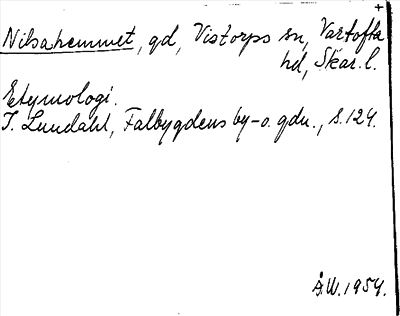 Nilsahemmet, gd, Vistorps sn, Vartofta
hd, Skar. l.
Etymologi.
I. Lundahl, Falbygdens by- o. gdn., s. 124.
Å.W. 1954.